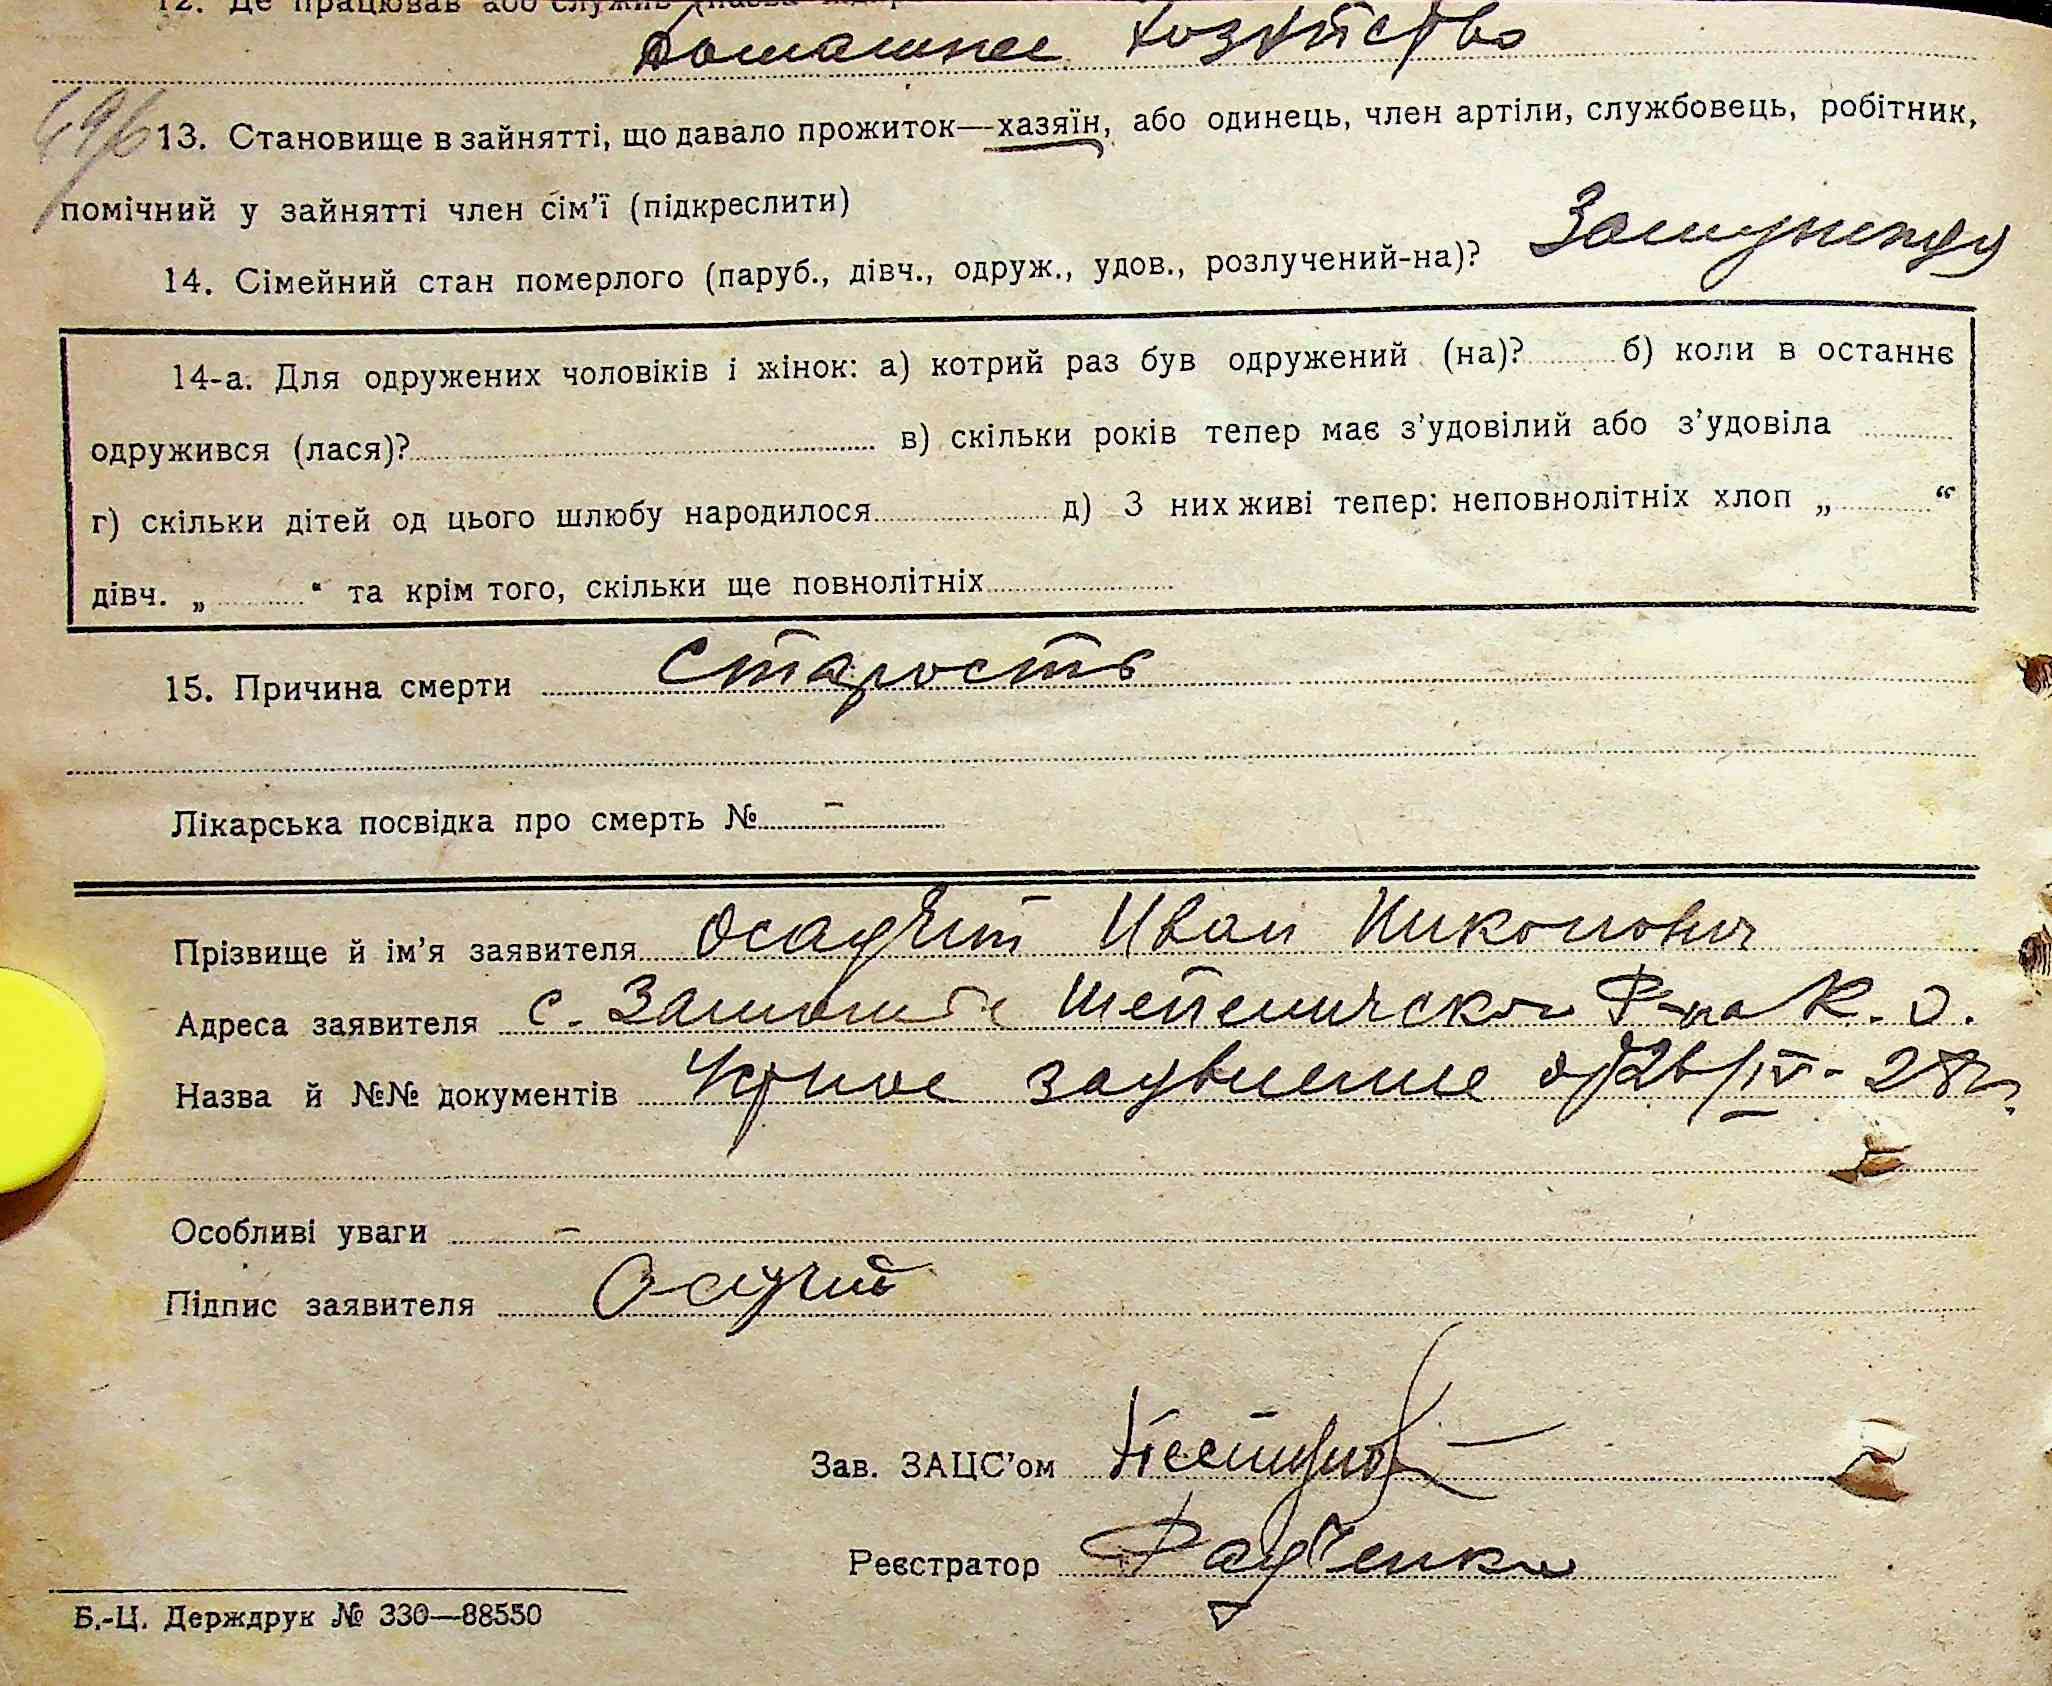 12. Де працював або служив
Домашнее хозяйство
496
13. Становище в зайнятті, що давало прожиток—хазяїн, або одинець, член артіли, службовець, робітник,
помічний у зайнятті член сім'ї (підкреслити)
14. Сімейний стан померлого (паруб., дівч., одруж., удов., розлучений-на)? Замужняя
14-а. Для одружених чоловіків і жінок: а) котрий раз був одружений (на)? б) коли в останнє
одружився (лася)? в) скільки років тепер має з'удовілий або з'удовіла
г) скільки дітей од цього шлюбу народилося д) З них живі тепер: неповнолітніх хлоп „ “
дівч. „ “ та крім того, скільки ще повнолітніх
15. Причина смерти старость
Лікарська посвідка про смерть № –
Прізвище й ім'я заявителя Осадчий Иван Никонович
Адреса заявителя с. Замошье Шепеличском Р-на К. О.
Назва й №№ документів Устное заявление от 26/IV-28 г.
Особливі уваги –
Підпис заявителя Осадчий
Зав. ЗАЦС'ом
Реєстратор Радченко
Б.-Ц. Держдрук № 330—88550